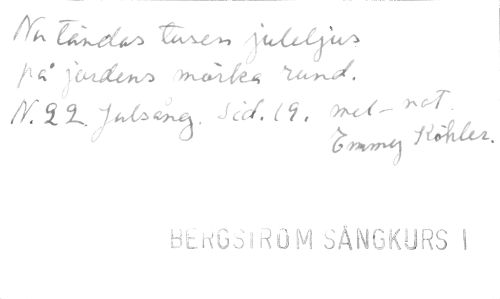 Nu tändas tusen juleljus
på jordens mörka rund.
N. 22. Julsång. Sid. 19. mel- not.
Emmy Köhler.
BERGSTRÖM SÅNGKURS I